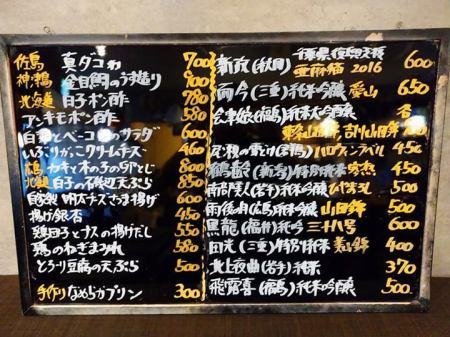 佐島 真ダコ 700
神鴨 金目鯛のうす造り 700
北海道 白子ポン酢 780
アンキモポン酢 580
白菜とベーコンのサラダ 600
いぶりがっこクリームチーズ 460
カキと木の子の 800
北海道 白子の磯辺天ぷら 850
自家製 明太チーズさつま揚げ 600
揚げ銀杏 450
鶏団子とナスの揚げだし 550
鶏のねぎまみれ 580
とろーり豆腐の天ぷら 500
手作り なめらかプリン 300
新政(秋田) 亜麻猫 2016 600
而今(三重)純米吟醸 愛山 650
会津娘(福島)純米大吟醸 各
ハロウィンラベル 450
鶴齢(新潟)特別純米 450
南部美人(岩手)純米吟醸 500
雨後の月(広島)純米吟醸 山田錦 500
黒龍(福井)純吟 三十八号 600
田光(三重)特別純米 400
北上夜曲(岩手)純米 370
飛露喜(福島)純米吟醸 500